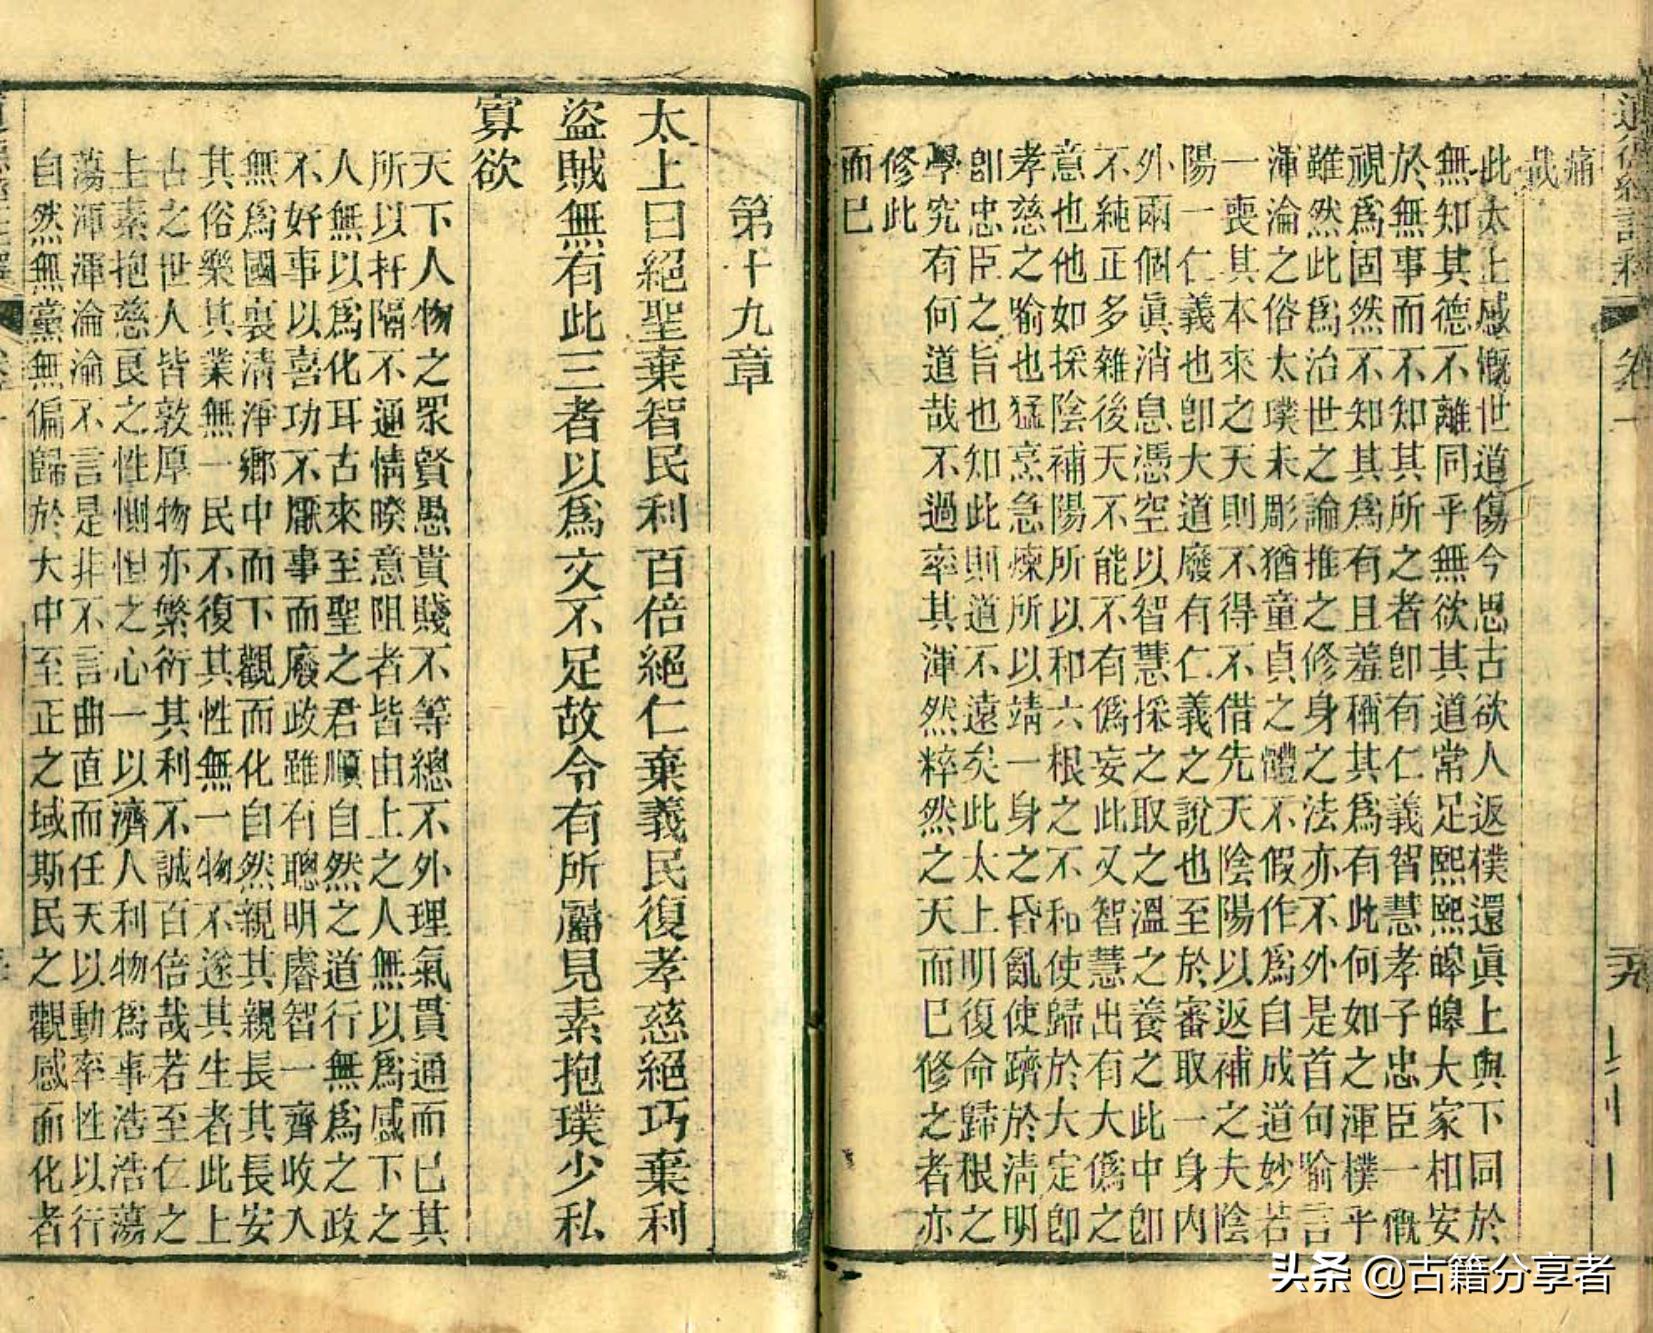 痛
哉
此太上感慨世道傷今思古欲人返樸還眞上與下同於
無知其德不離同乎無欲其道常足熙熙皞皞大家相安
於無事而不知其所之者卽有仁義智慧孝子忠臣一慨
視爲固然不知其爲有且羞稱其爲有此何如之渾樸乎
雖然此爲治世之論推之修身之法亦不外是首句喻言
渾淪之俗太璞未彫猶童貞之體不假作爲自成道妙若
一喪其本來之天則不得不借先天陰陽以返補之夫陰
陽一仁義也卽大道廢有仁義之說也至於審取一身內
外兩個眞消息憑空以智慧採之取之溫之養之此中卽
不純正多雜後天不能不有僞妄此又智慧出有大僞之
意也他如採陰補陽所以和六根之不和使歸於大定卽
孝慈之喻也猛烹急煉所以靖一身之昏亂使躋於淸明
卽忠臣之旨也知此則道不遠矣此太上明復命歸根之
學究有何道哉不過率其渾然粹然之天而已修之者亦
修此
而已
第十九章
太上曰絕聖棄智民利百倍絕仁棄義民復孝慈絕巧棄利
盜賊無有此三者以爲文不足故令有所屬見素抱璞少私
寡欲
天下人物之眾賢愚貴賤不等總不外理氣貫通而已其
所以扞隔不通情暌意阻者皆由上之人無以爲感下之
人無以爲化耳古來至聖之君順自然之道行無爲之政
不好事以喜功不厭事而廢政雖有聰明睿智一齊收入
無爲國裏清淨鄉中而下觀而化自然親其親長其長安
其俗樂其業無一民不復其性無一物不遂其生者此上
古之世人皆敦厚物亦繁衍其利不誠百倍哉若至仁之
上素抱慈良之性惻怛之心一以濟人利物爲事浩浩蕩
蕩渾渾淪淪不言是非不言曲直而任天以動率性以行
自然無黨無偏歸於大中至正之域斯民之觀感而化者
头条 @古籍分享者